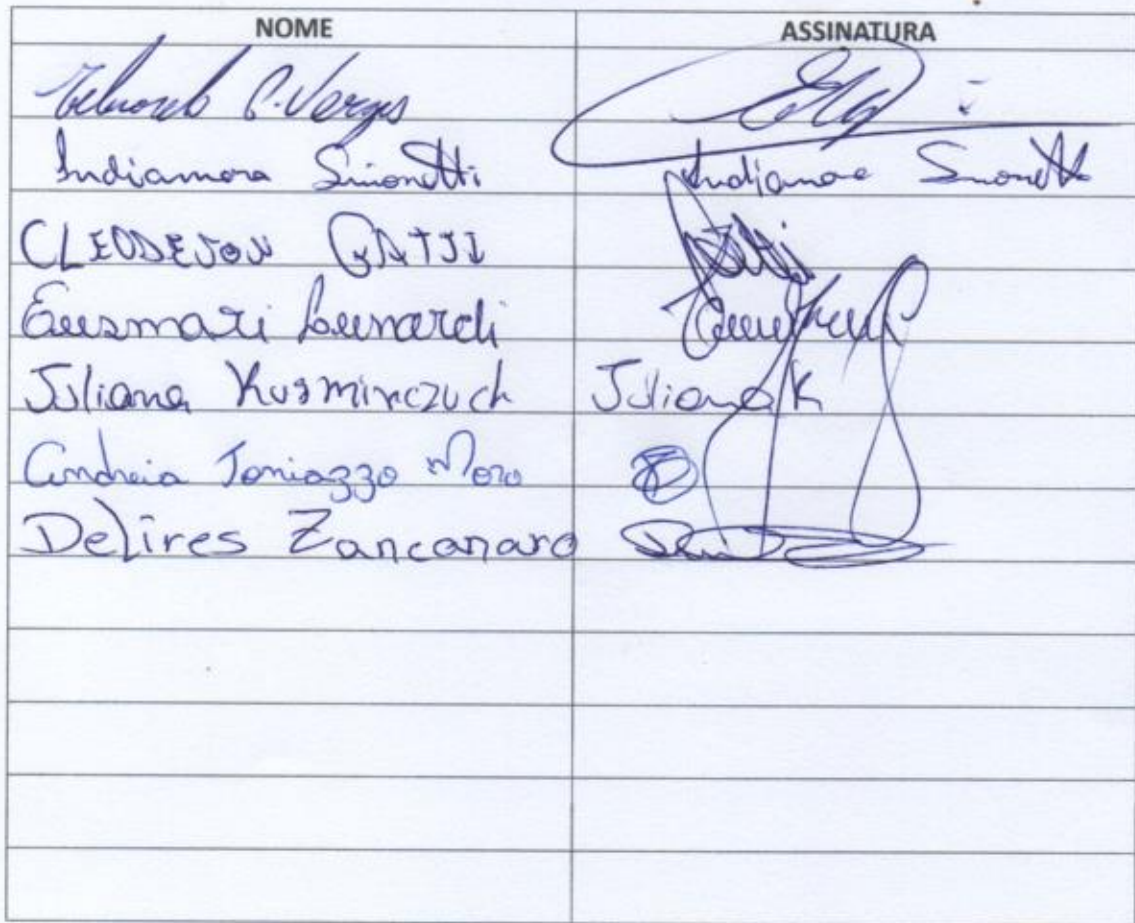 NOME ASSINATURA
C. Vergs
Indiamora Simonetti Indiamora Simonetti
CLEODEJON GATTI
Eusmari Lunardi
Juliana Kusminczuch Juliana K
Andreia Toniazzo Moro
Delires Zancanaro